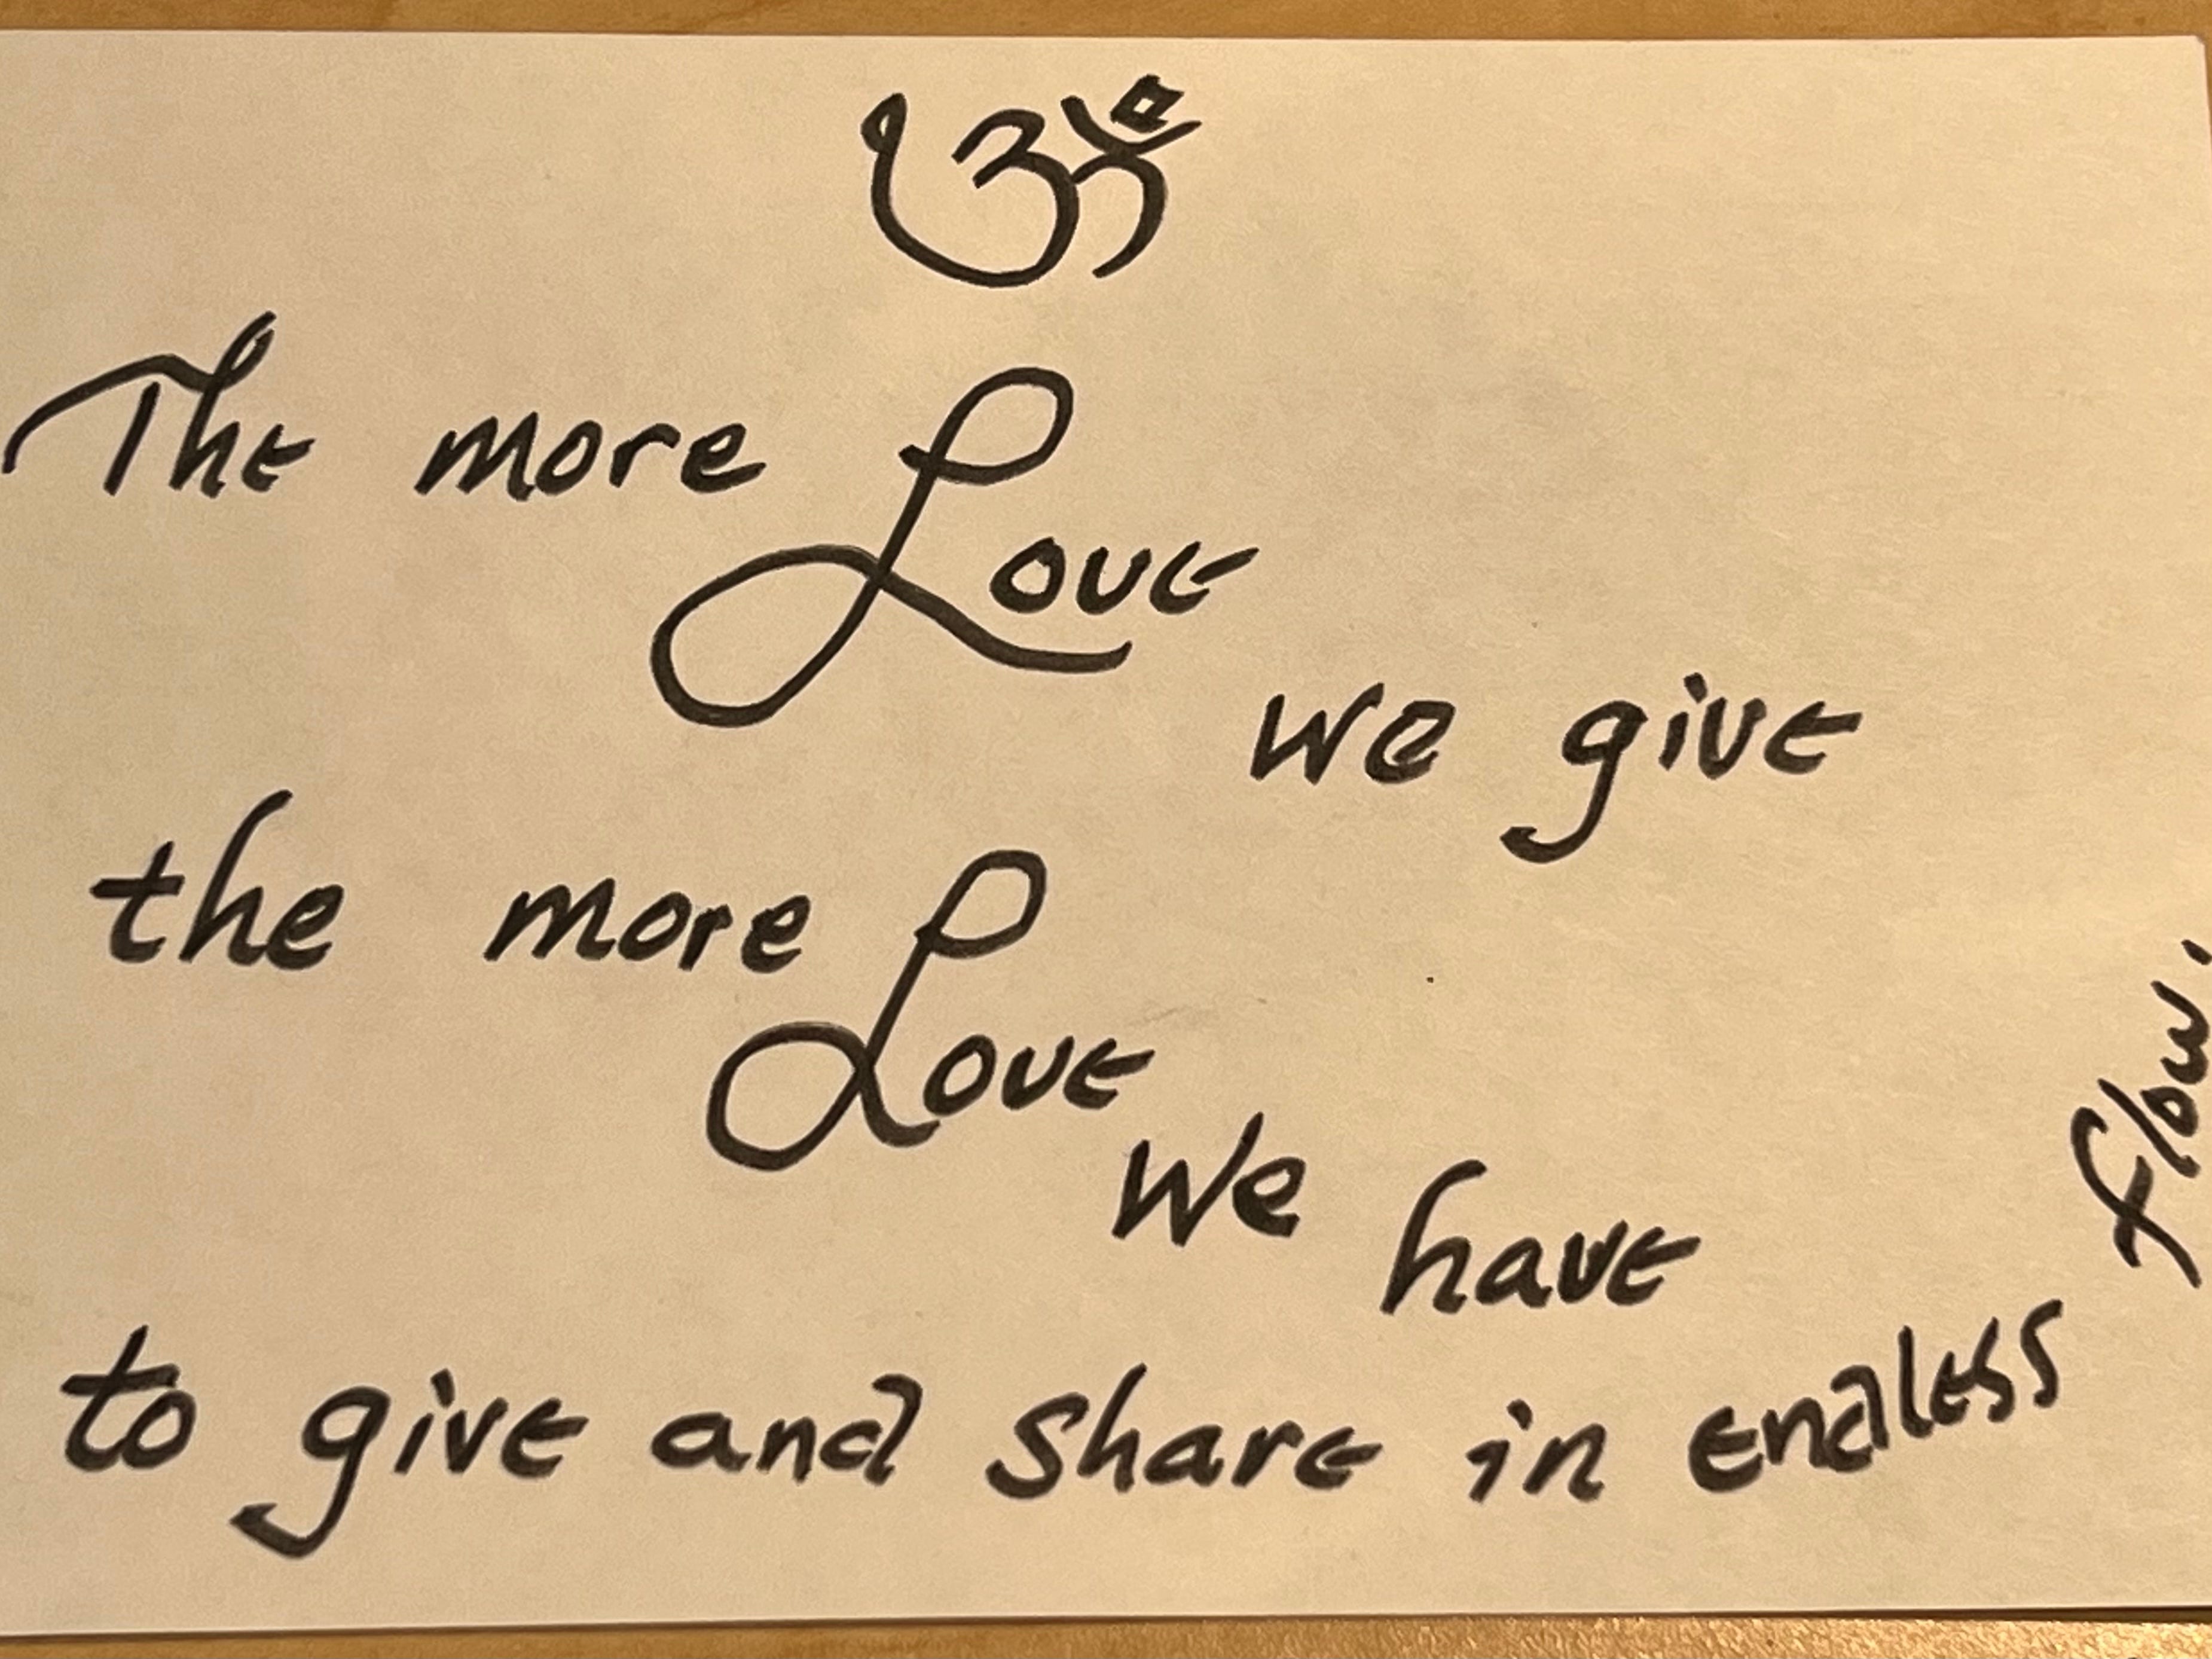 ॐ
The more
Love
we give
the more
Love
We have
to give and share in endless
flow.